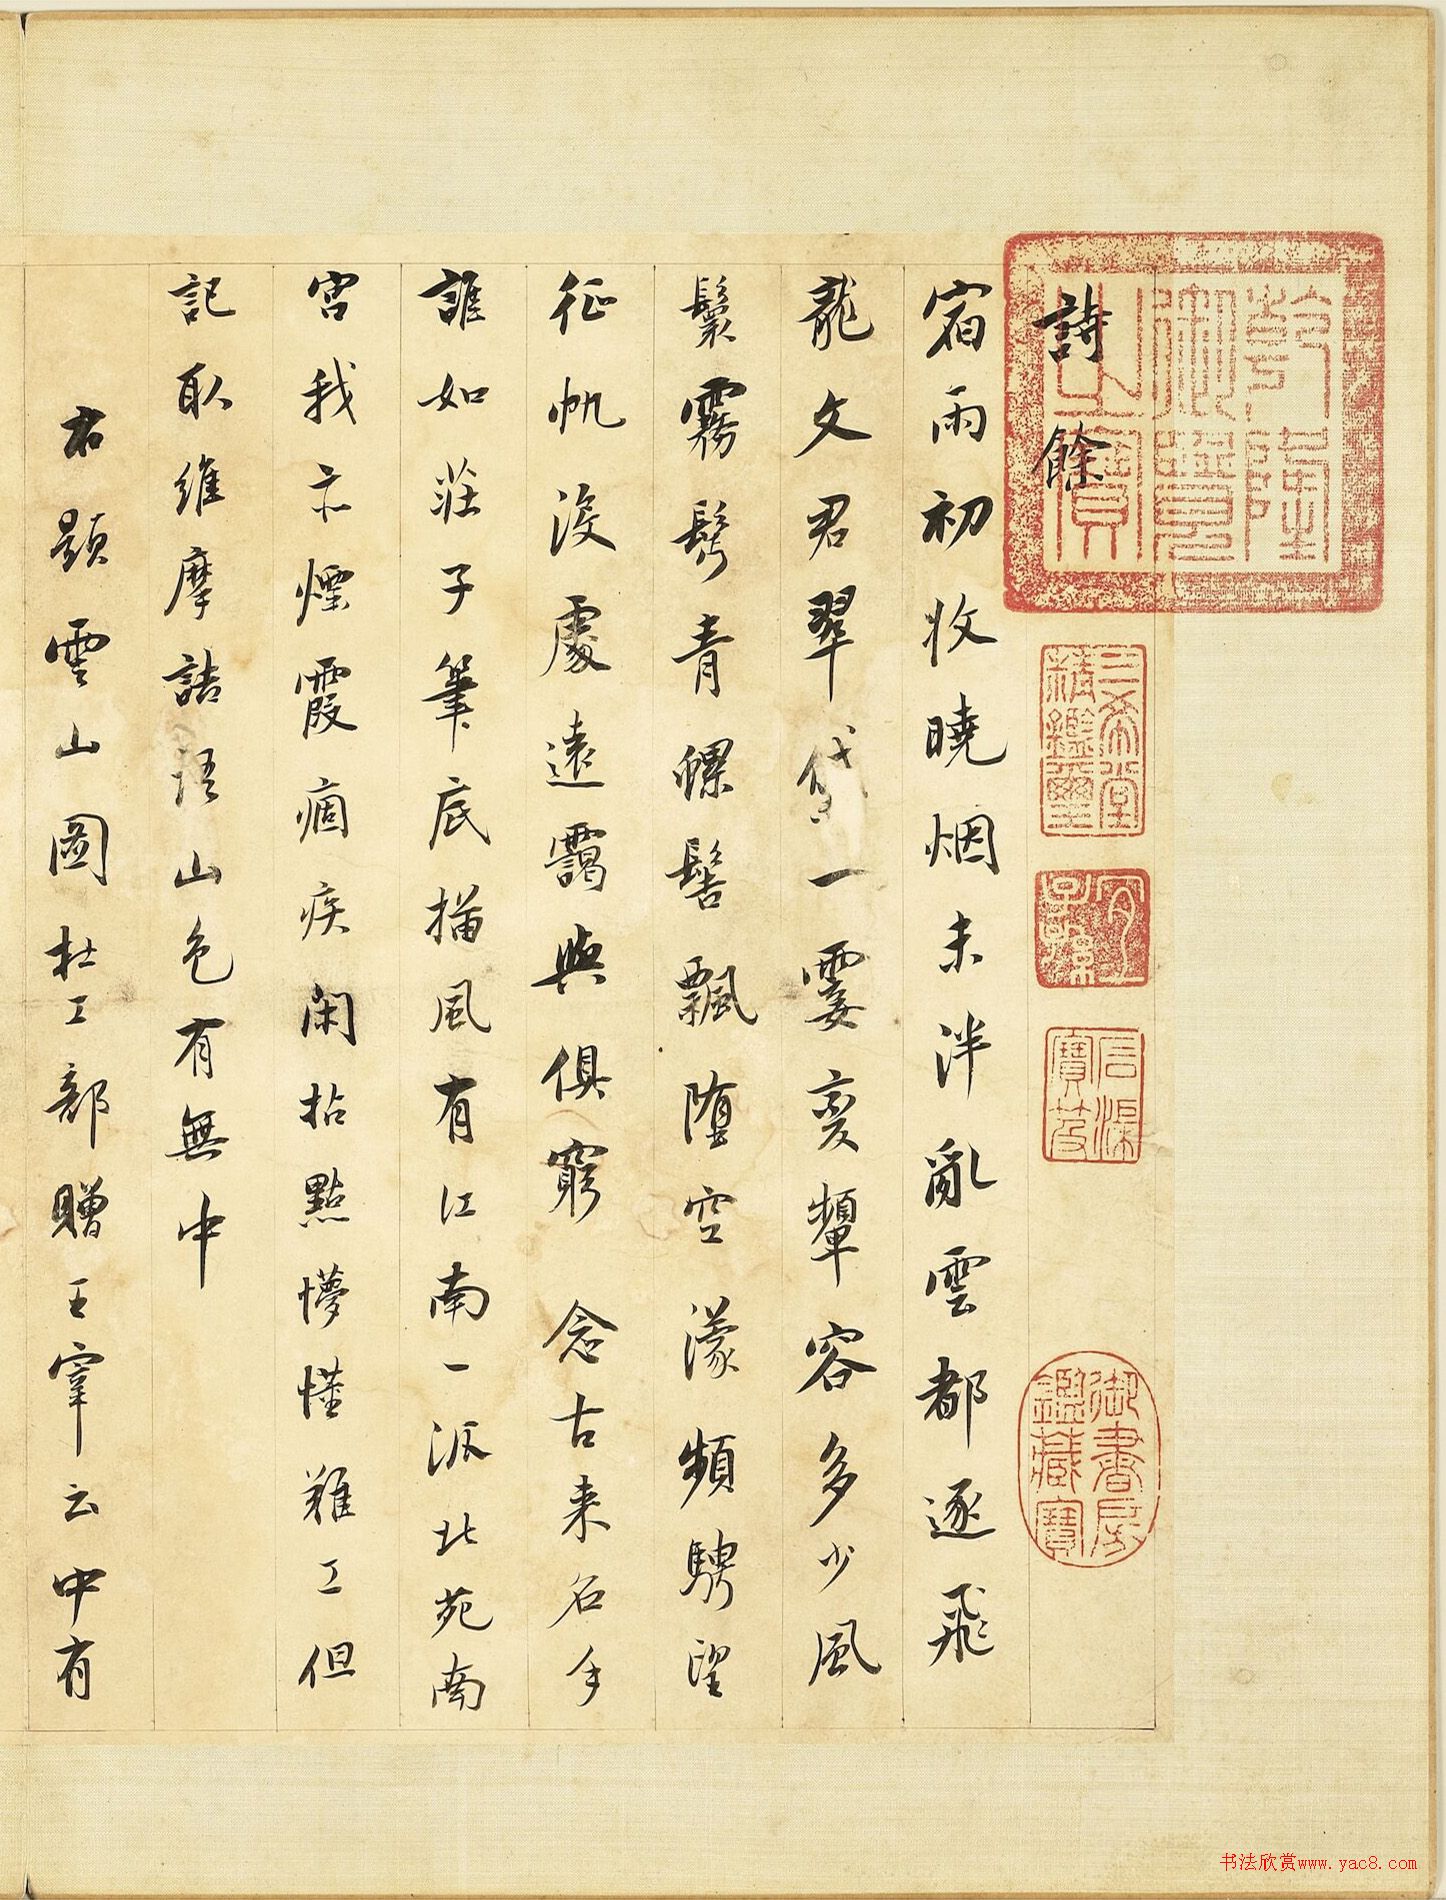 詩餘
宿雨初收曉烟未泮亂雲都逐飛
龍文君翠黛一霎變顰容多少風
鬟霧鬢青螺髻飄墮空濛頻騁望
征帆沒處遠靄與俱窮 念古來名手
誰如莊子筆底描風有江南一派北苑南
宮我亦煙霞痼疾閑拈點懵懂難工但
記取維摩詰語山色有無中
右題雲山圖杜工部贈王宰云中有
乾隆御覽之寶
三希堂精鑑璽
宜子孫
石渠寶笈
御書房鑑藏寶
书法欣赏www.yac8.com